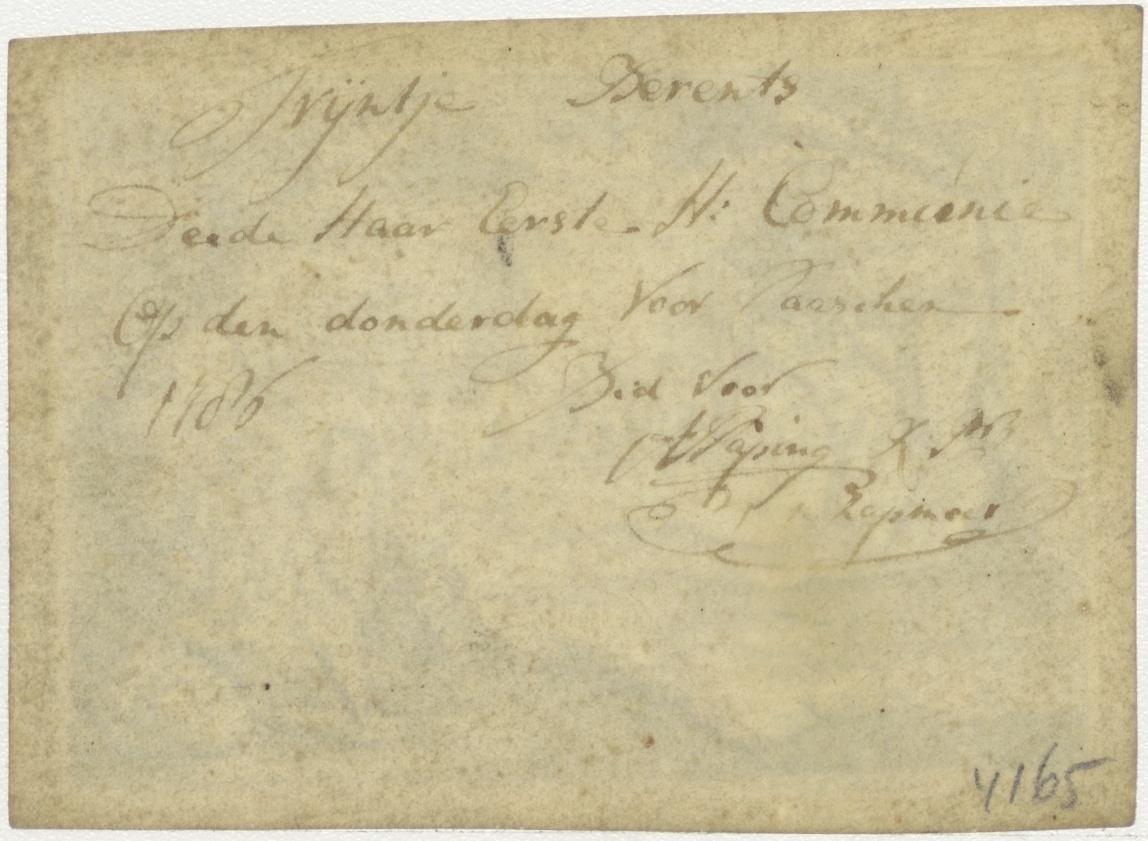 Trijntje Berents
Deede Haar Eerste H: Communie
Op den donderdag Voor Paeschen
1786 Bid Voor
Paping
Zapmeer
4165